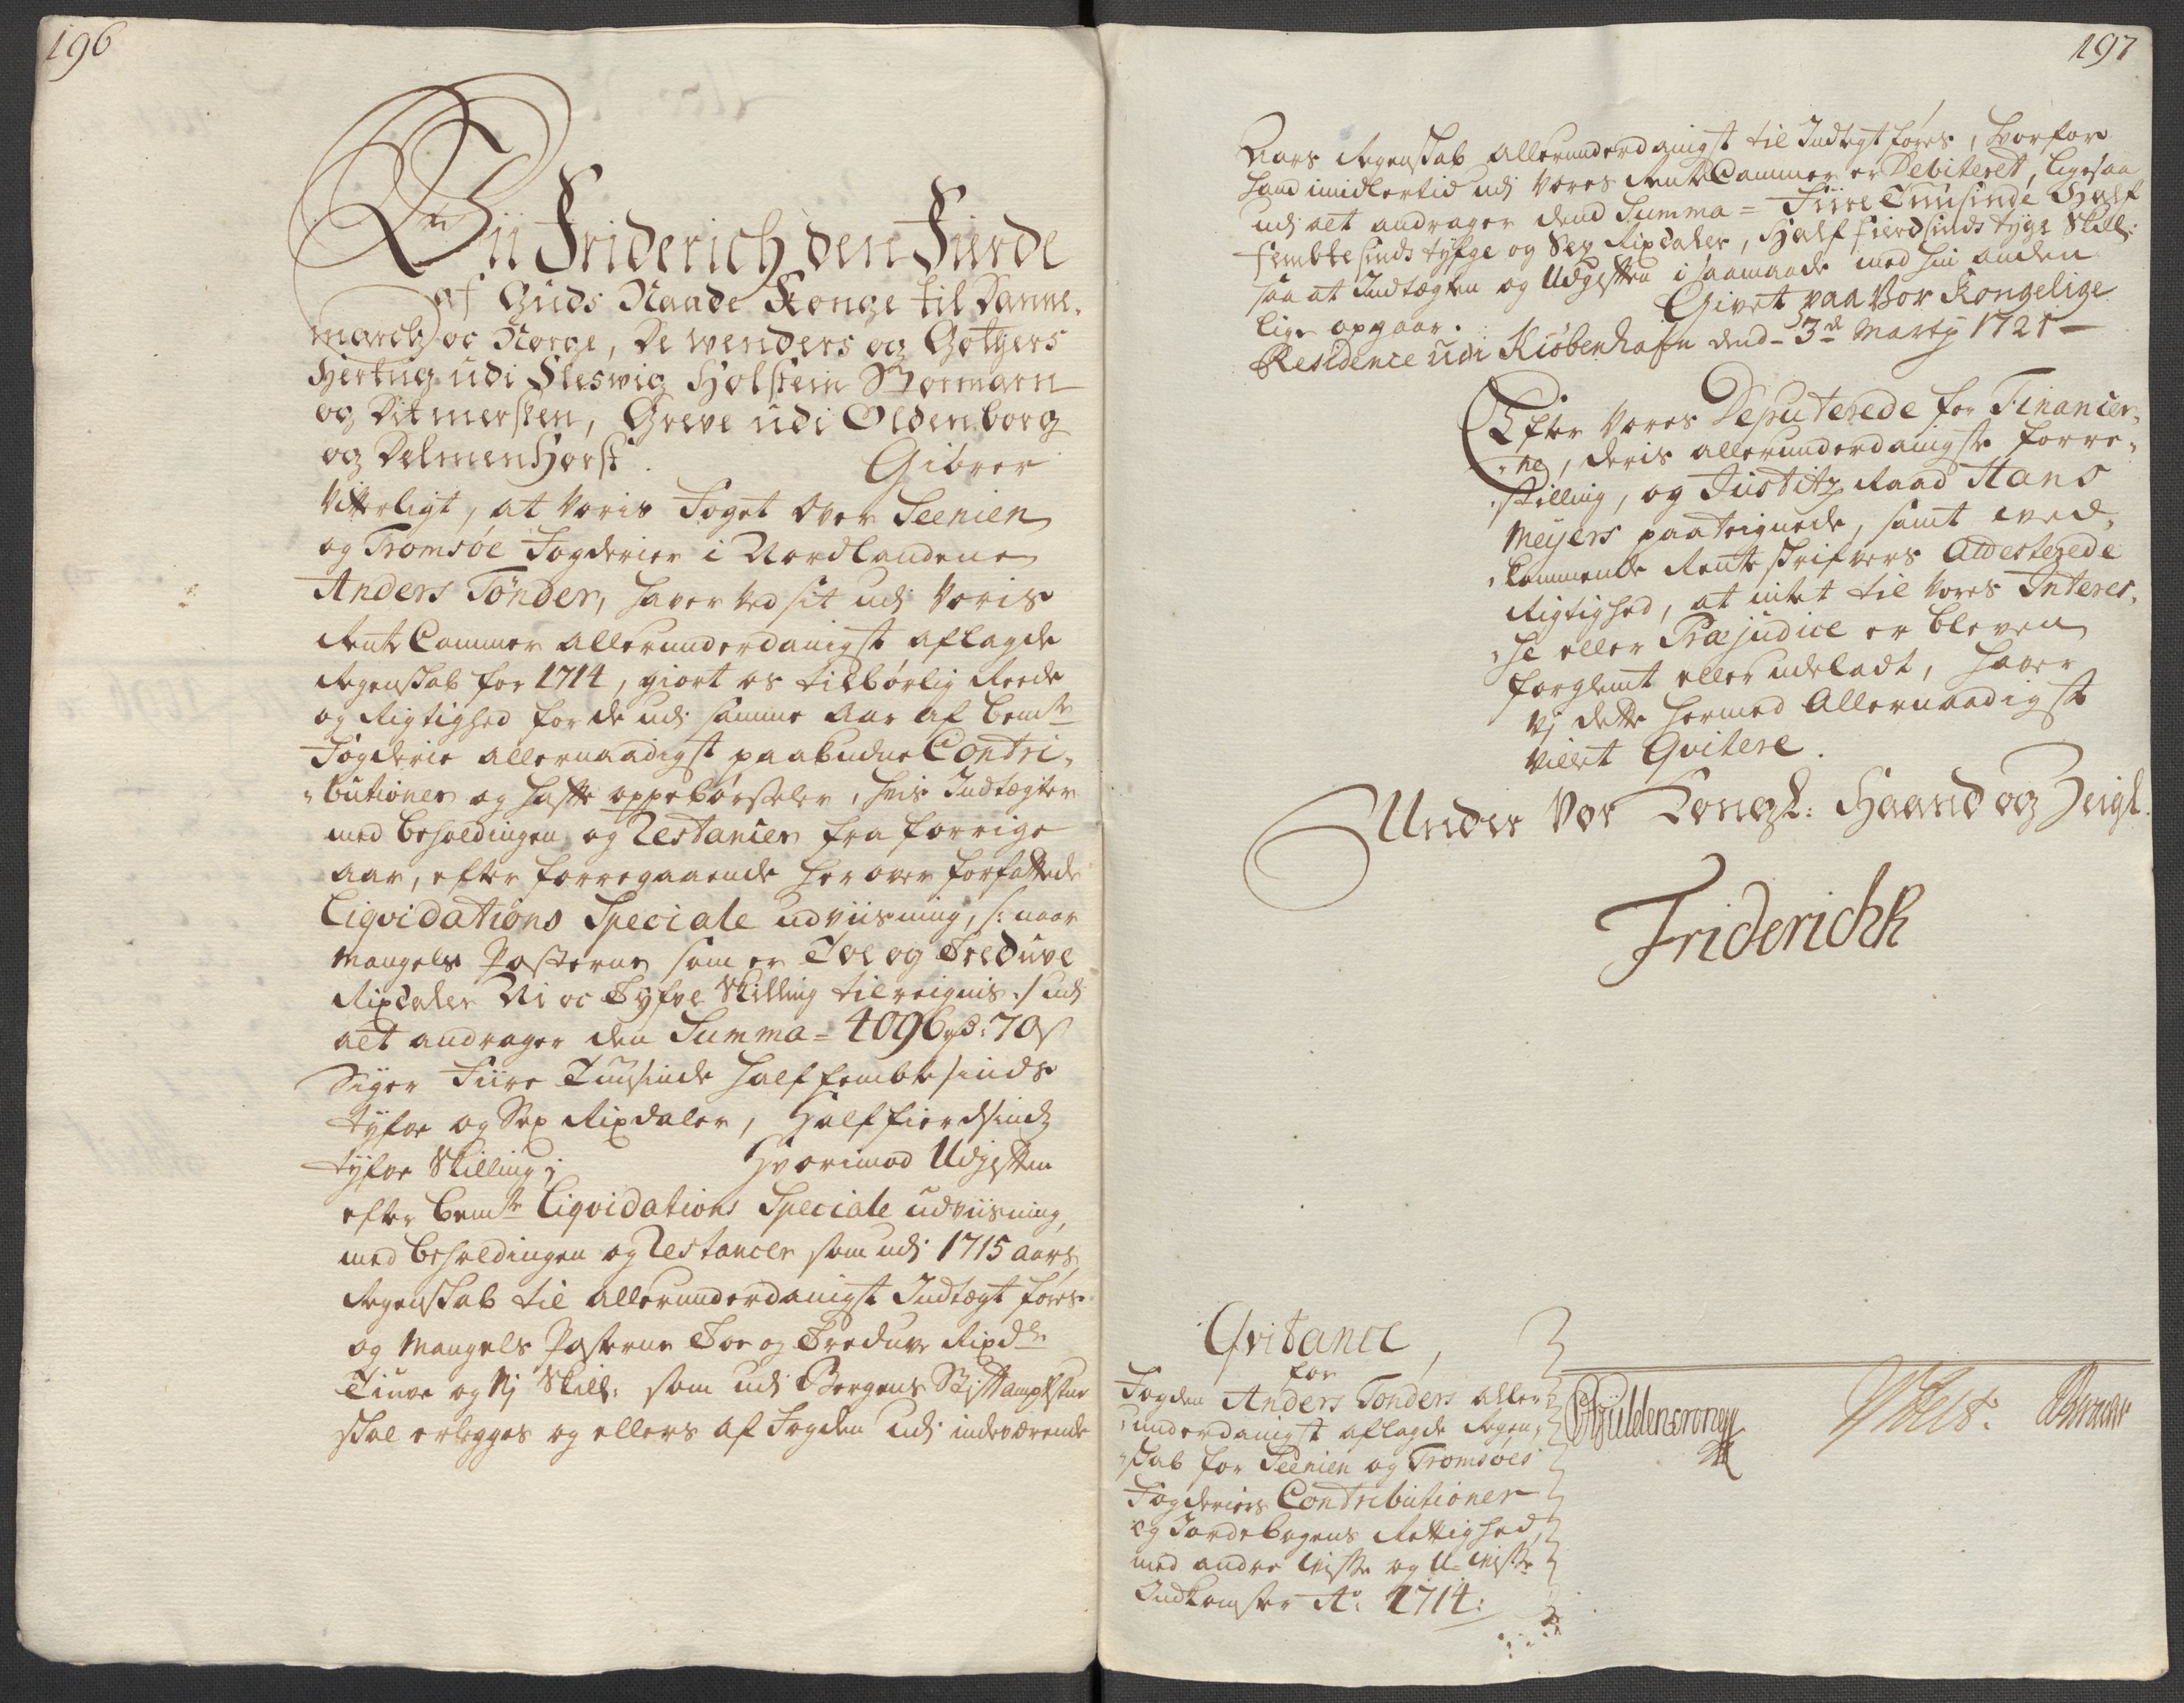 196
Vii Friderich den Fierde
af Guds Naade Konge til Danne,
marck oc Norge, De Wenders og Gothers
Hertug udi Sleswig Holstein Stormarn
og Ditmersken, Greve udi Oldenborg
og Delmenhorst. Giører
Vitterligt, at Voris Foget Over Seenien
og Tromsøe Fogderier i Nordlandene
Anders Tønder, haver ved sit udi Voris
Rente Cammer allerunderdanigst aflagde
Regenskab for 1714, giort os tilbørlig Reede
og Rigtighed for de udi samme Aar af bemte
Fogderie allernaadigst paabudne Contri,
butioner og hafte oppebørseler, hvis Indtægter
med beholdingen og Restancer fra forrige
Aar, efter forregaaende her over forfattede
Liqvidations Speciale udviisning, /: naar
Mangels Posterne som er Toe og Treduve
Rixdaler Ni oc Tyfve Skilling tilreignis :/ udi
alt andrager den Summa = 4096 rd: 70 s
Siger Fiire Tuusinde half fembte sinds
tyfve og Sex Rixdaler, Half fierdsinds
tyfve Skilling; Hvorimod Udgiften
efter bemte Liqvidations Speciale udviisning,
med beholdingen og Restancer som udi 1715 aars
Regenskab til allerunderdanigst Indtægt føres
og Mangels Posterne Toe og Treduve Rixdr
Tiuve og Nj Skill: som udi Bergens Stiftamptstue
skal erlegges og ellers af Fogden udi indeværende
197
Aars Regenskab allerunderdanigst til Indtegt føres, hvorfor
hand imidlertid udi Vores Rente Cammer er Debiteret, ligesaa
udi alt andrager dend Summa = Fiire Tuusinde Half
fembte sinds tyfge og Sex Rixdaler, Half fierdsinds tyge Skill:
saa at Indtægten og Udgiften i saamaade med hin anden
lige opgaar. Givet paa Vor Kongelige
Residence udi Kiøbenhafn dend 3de Martij 1721
Efter Vores Deputerede for Financer,
ne, deris allerunderdanigste forre,
stilling, og Justitz Raad Hans
Meyers paateignede, samt ved,
kommende Rente skrifvers Attesterede
Rigtighed, at intet til Vores Interes,
se eller Præjudice er bleven
forglemt eller udeladt, haver
vj dette hermed Allernaadigst
villet Qvitere.
Under Vor Kongl: Haand og Zeigl.
Friderich R
Qvitance,
for
Fogden Anders Tønders aller
underdanigst aflagde Regen,
skab for Seenien og Tromsøes
Fogderiers Contributioner
og Jordebogens Rettighed,
med andre Visse og U-Visse
Indkomster Ao: 1714:
CGüldencrone